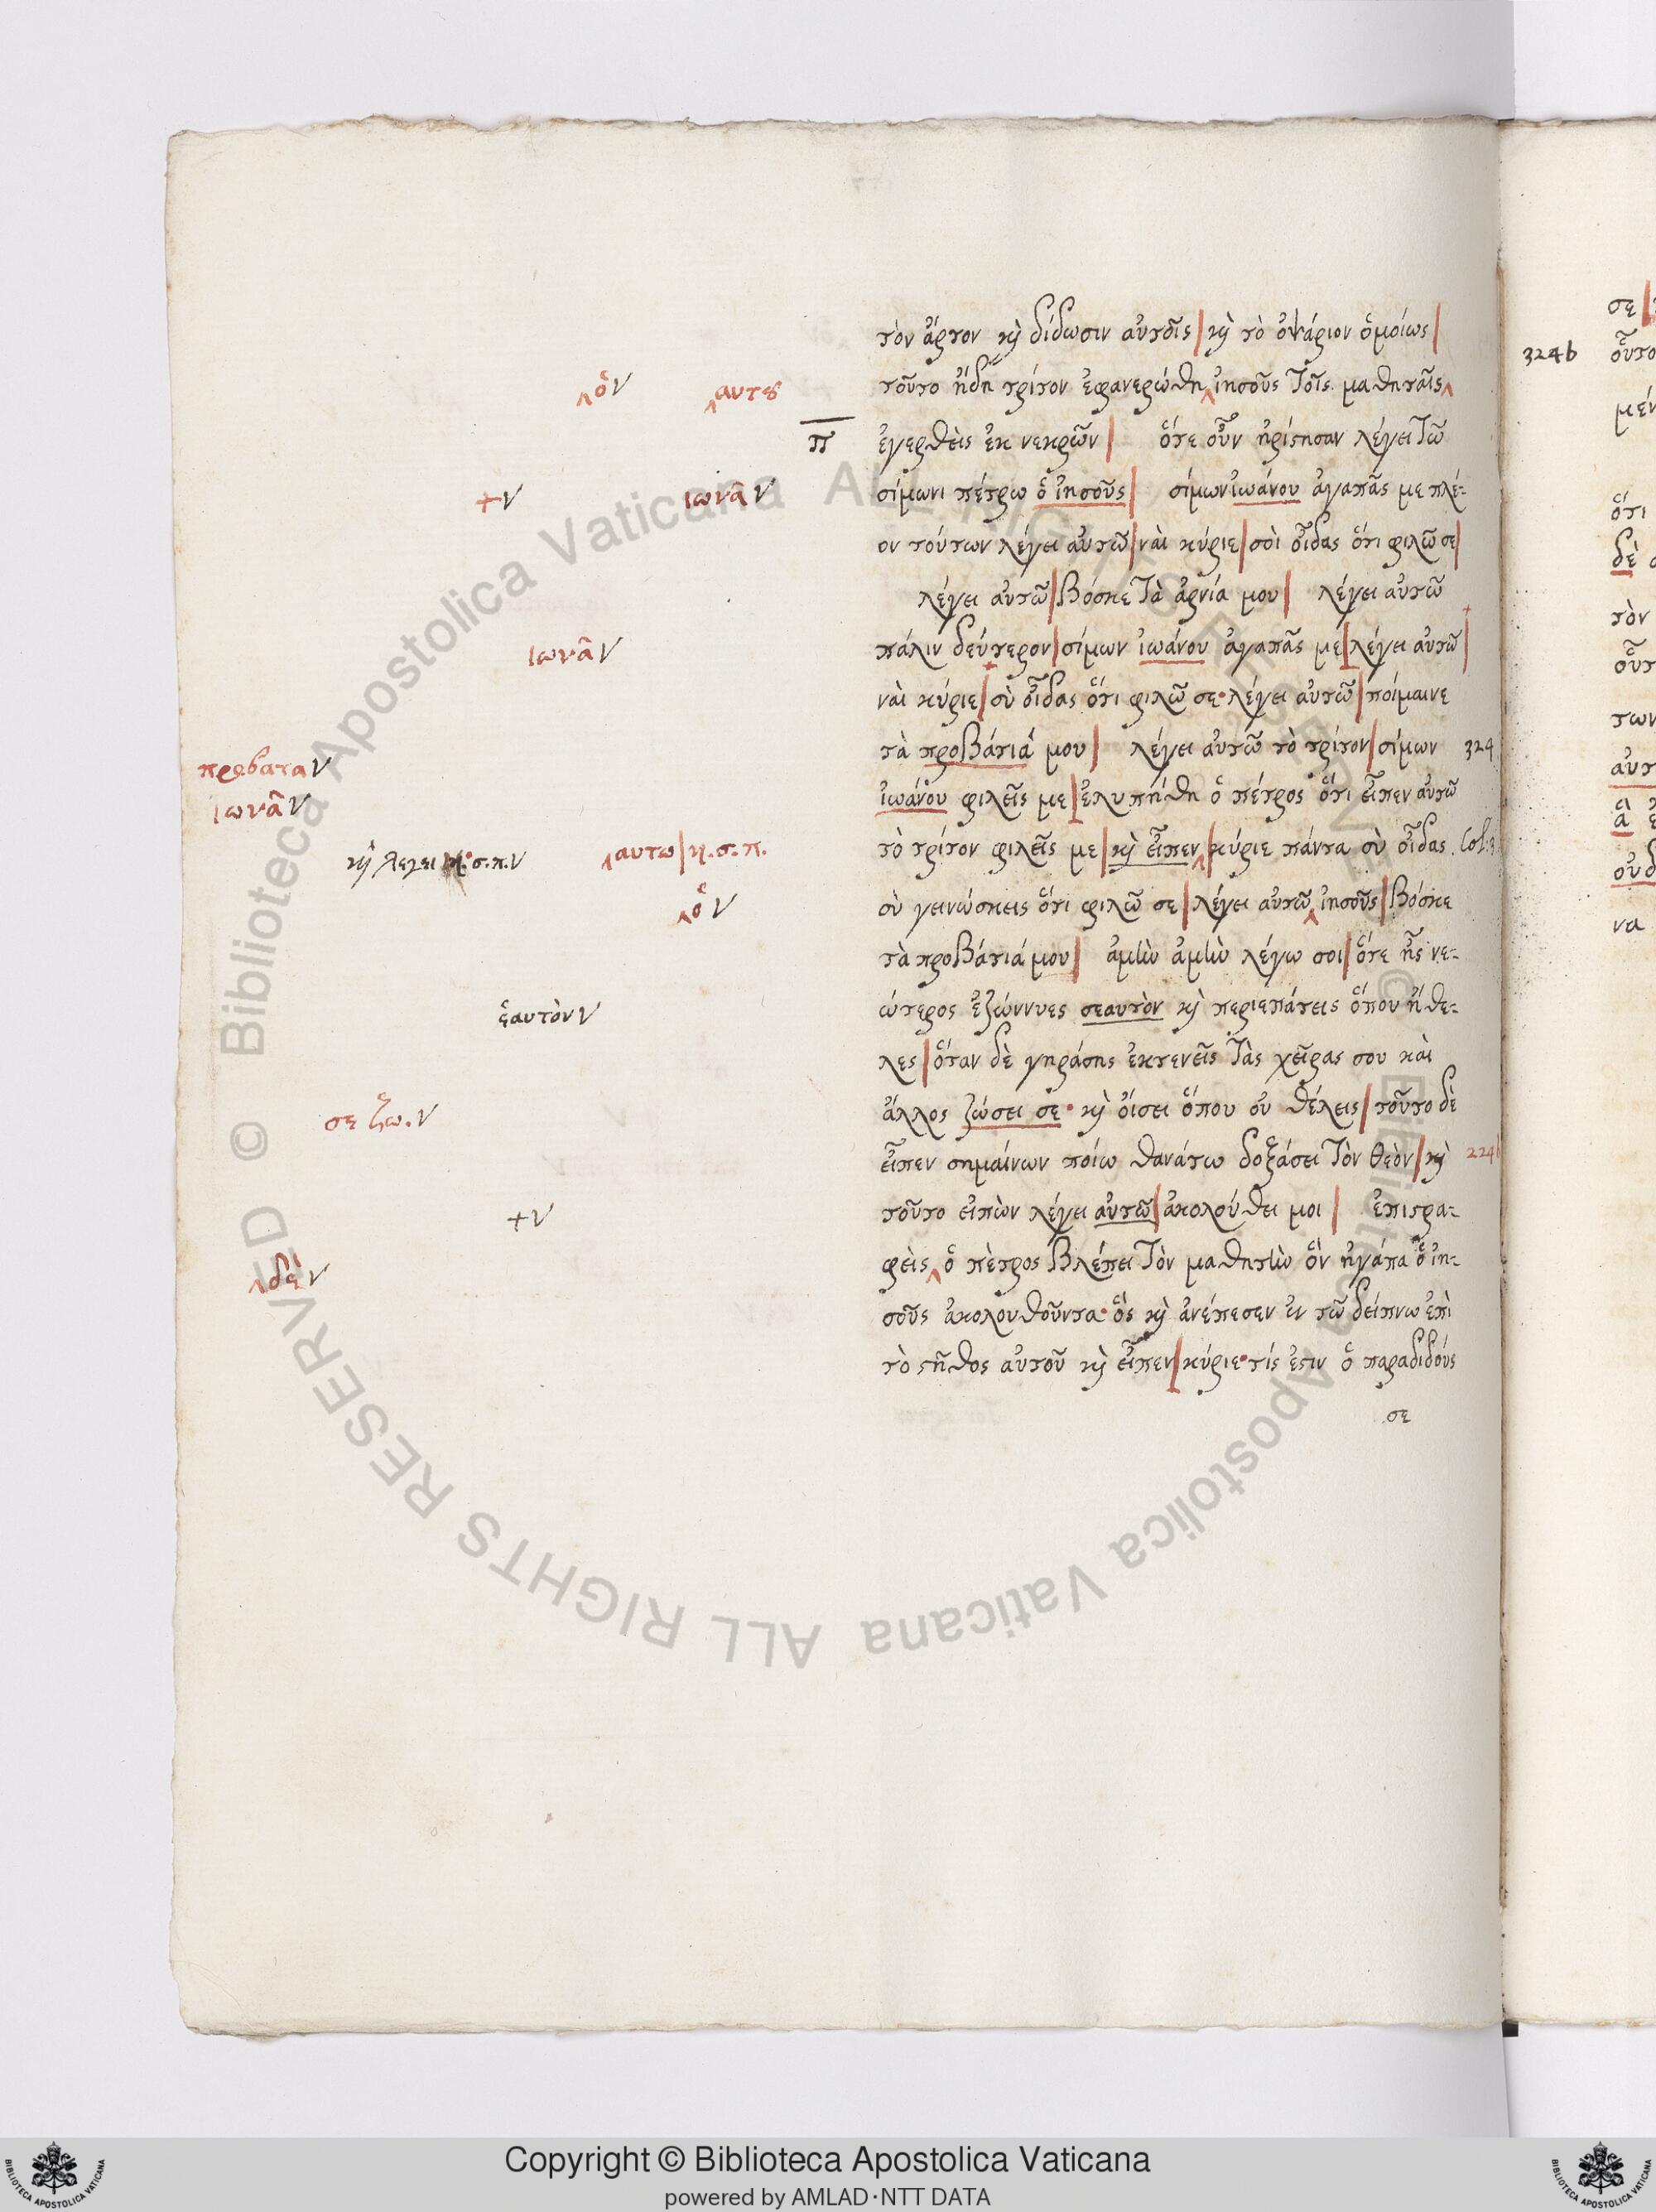 τὸν ἄρτον κỳ δίδωσιν αὐτοῖς| κỳ τὸ ὀψάριον ὁμοίως|
τοῦτο ἤδη τρίτον ἐφανερώθη‸ἰησοῦς τοῖς μαθηταῖς‸
‸ὁ ν ‸αυτȣ
ἐγερθεὶς ἐκ νεκρῶν| ὅτε οὖν ἠρίϛησαν λέγει τῶ
π
σίμωνι πέτρω ὁ ἰησοῦς| σίμων ἰωάνου ἀγαπᾶς με πλέ-
+ν ιωνᾶ ν
ον τούτων λέγει αὐτῶ|ναὶ κύριε|σὺ οἶδας ὅτι φιλῶ σε|
λέγει αὐτῶ|Βόσκε τὰ ἀρνία μου| λέγει αὐτῶ
πάλιν δεύτερον|σίμων ἰωάνου ἀγαπᾶς με|λέγει αὐτῶ|
ιωνᾶ ν
ναὶ κύριε|σὺ οἶδας ὅτι φιλῶ σε·λέγει αὐτῶ|ποίμαινε
τὰ προΒάτιά μου| λέγει αὐτῶ τὸ τρίτον|σίμων 324
προβατα ν
ἰωάνου φιλεῖς με|ἐλυπήθη ὁ πέτρος ὅτι εἶπεν αὐτῶ
ιωνᾶ ν
τὸ τρίτον φιλεῖς με|κỳ εἶπεν‸|κύριε πάντα σὺ οἶδας
κỳ λεγει κ·σ.π.ν ‸αυτω|κ.σ.π.
σὺ γεινώσκεις ὅτι φιλῶ σε|λέγει αὐτῶ‸ἰησοῦς|Βόσκε
‸ὁ ν
τὰ προΒάτιά μου| ἀμὴν ἀμὴν λέγω σοι|ὅτε ἦς νε-
ώτερος ἐζώννυες σεαυτὸν κỳ περιεπάτεις ὅπου ἤθε-
ἑαυτὸν ν
λες|ὅταν δὲ γηράσης ἐκτενεῖς τὰς χεῖρας σου καὶ
ἄλλος ζώσει σε· κỳ οἴσει ὅπου οὐ θέλεις|τοῦτο δὲ
σε ζω. ν
εἶπεν σημαίνων ποίω θανάτω δοξάσει τὸν θεὸν|κỳ
τοῦτο εἰπὼν λέγει αὐτῶ|ἀκολούθει μοι| ἐπιϛρα-
+ν
φεὶς‸ὁ πέτρος Βλέπει τὸν μαθητὴν ὃν ἠγάπα ὁ ἰη-
‸δὲ ν
σοῦς ἀκολουθοῦντα·ὃς κỳ ἀνέπεσεν ἐν τῶ δείπνω ἐπὶ
τὸ ϛῆθος αὐτοῦ κỳ εἶπεν|κύριε·τίς ἐϛιν ὁ παραδιδούς
σε
324b
σε
μέν
ὅτι
δὲ
τὸν
των
αὐτ
να
© Biblioteca Apostolica Vaticana ALL RIGHTS RESERVED
© Biblioteca Apostolica Vaticana ALL RIGHTS RESERVED
Copyright © Biblioteca Apostolica Vaticana
powered by AMLAD·NTT DATA
BIBLIOTECA APOSTOLICA VATICANA
BIBLIOTECA APOSTOLICA VATICANA